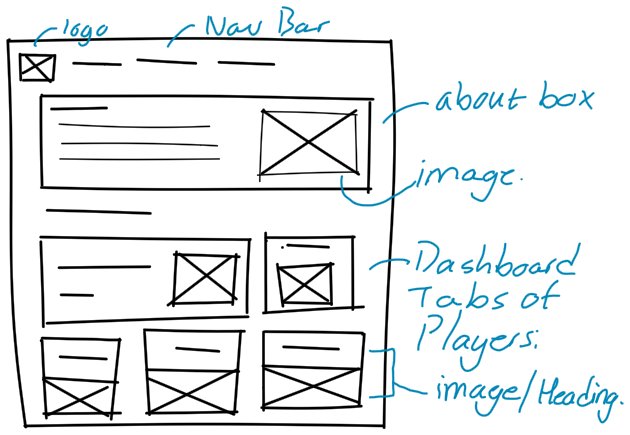 logo
Nav Bar
about box
image.
Dashboard
Tabs of
Players:
image/Heading.